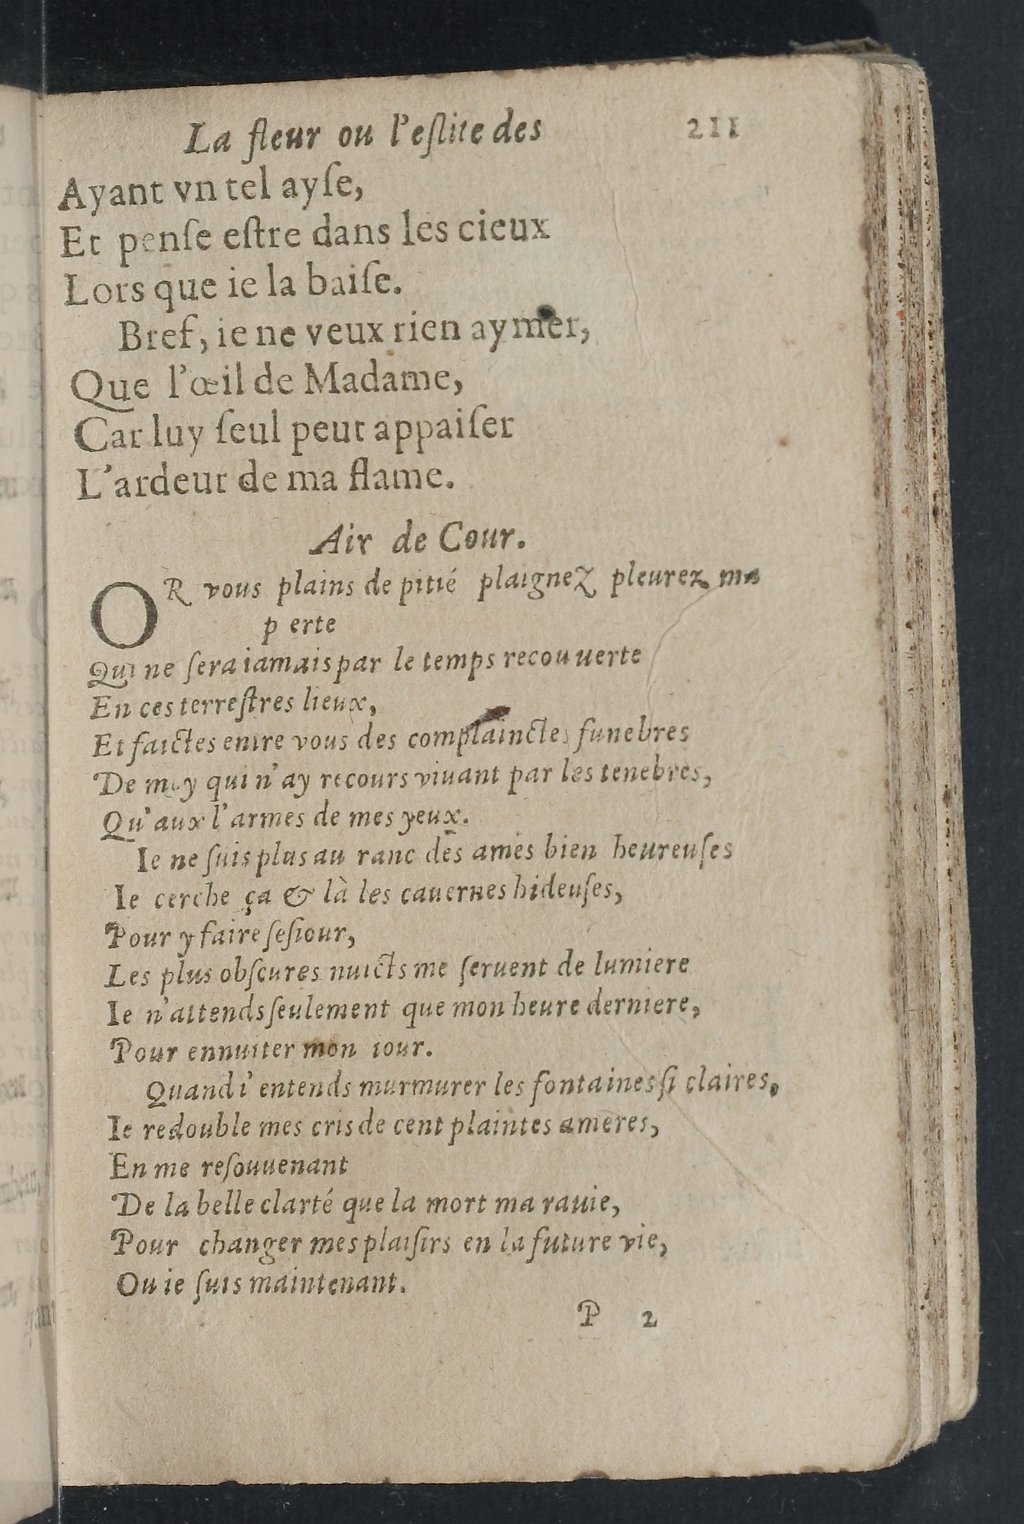 La fleur ou l'eſlite des 211
Ayant vn tel ayſe,
Et penſe eſtre dans les cieux
Lors que ie la baiſe.
Bref, ie ne veux rien aymer,
Que l'œil de Madame,
Car luy ſeul peut appaiſer
L'ardeur de ma flame.
Air de Cour.
OR vous plains de pitié plaignez pleurez ma
p erte
Qui ne ſera iamais par le temps recouuerte
En ces terreſtres lieux,
Et faictes entre vous des complainctes funebres
De moy qui n'ay recours viuant par les tenebres,
Qu'aux l'armes de mes yeux.
Ie ne ſuis plus au ranc des ames bien heureuſes
Ie cerche ça & là les cauernes hideuſes,
Pour y faire ſeſiour,
Les plus obſcures nuicts me ſeruent de lumiere
Ie n'attends ſeulement que mon heure derniere,
Pour ennuiter mon iour.
Quand i'entends murmurer les fontaines ſi claires,
Ie redouble mes cris de cent plaintes ameres,
En me reſouuenant
De la belle clarté que la mort ma rauie,
Pour changer mes plaiſirs en la future vie,
Ou ie ſuis maintenant.
P 2